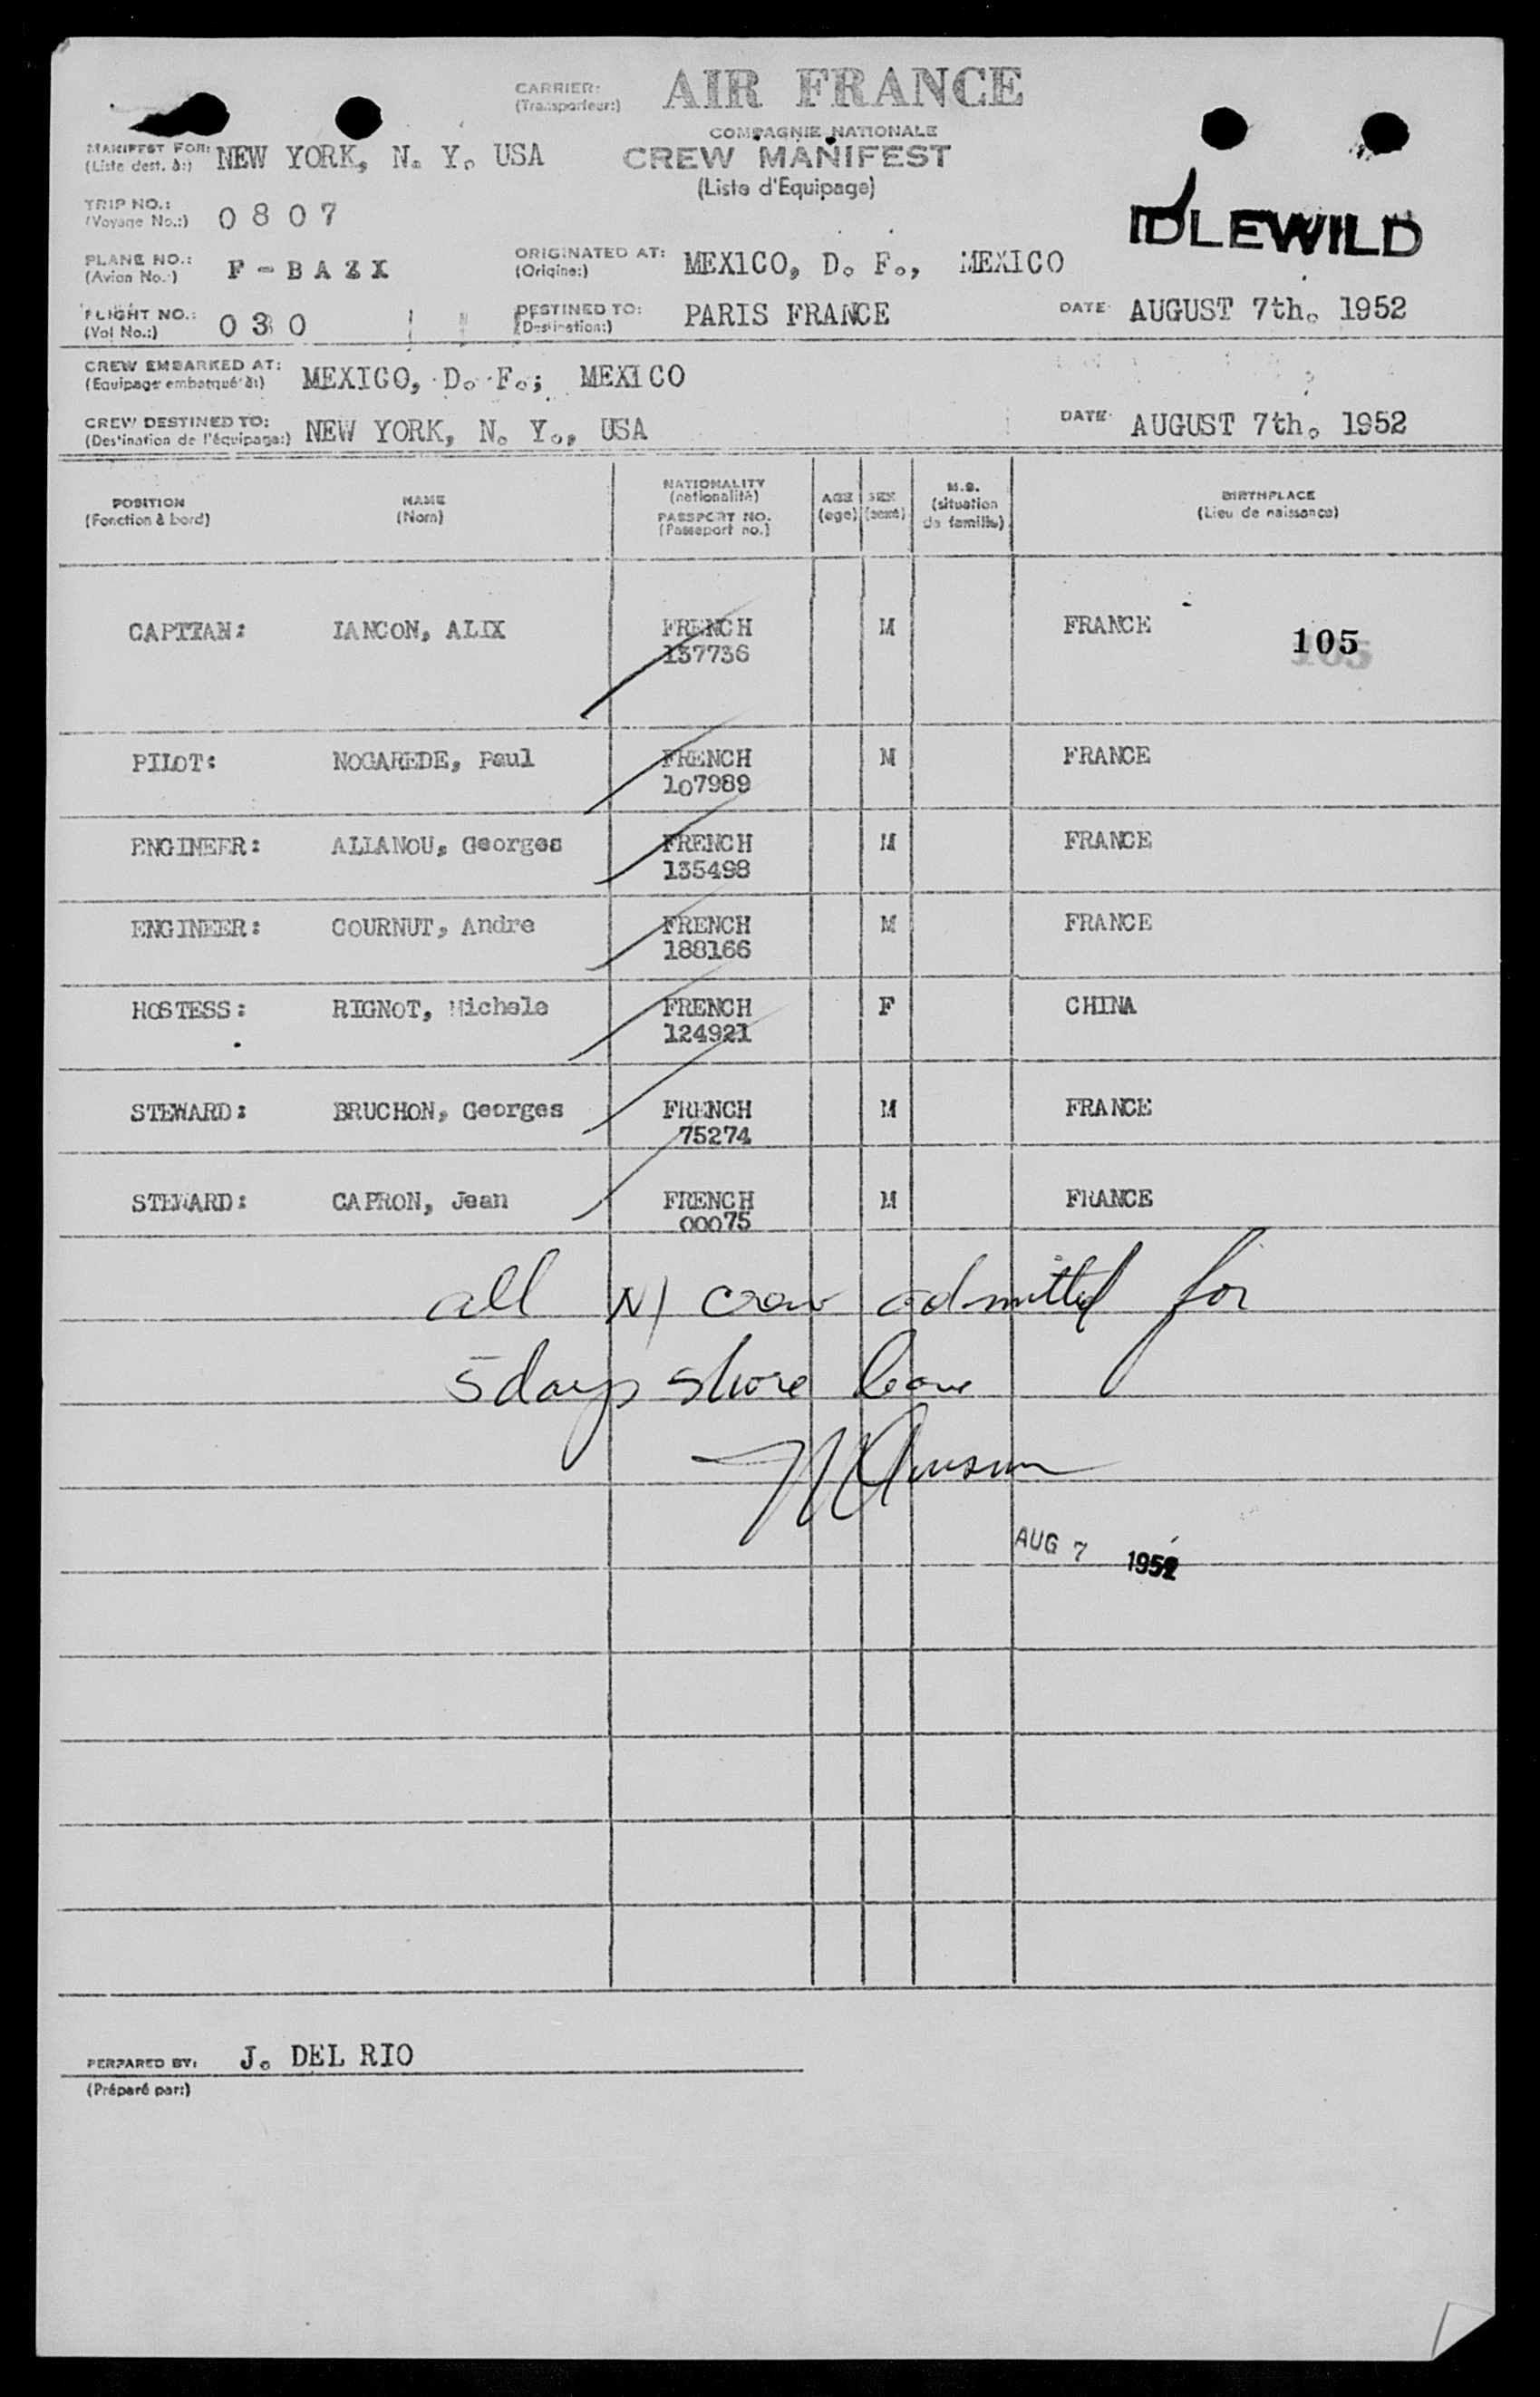 CARRIER: AIR FRANCE
(Transporteur:)
COMPAGNIE NATIONALE
MANIFEST FOR: NEW YORK, N. Y. USA
(Liste dest. à:)
CREW MANIFEST
(Liste d'Equipage)
TRIP NO.: 0807
(Voyage No.:)
IDLEWILD
PLANE NO.: F-BAZX
(Avion No.:)
ORIGINATED AT: MEXICO, D. F., MEXICO
(Origine:)
FLIGHT NO.: 030
(Vol No.:)
DESTINED TO: PARIS FRANCE
(Destination:)
DATE AUGUST 7th. 1952
CREW EMBARKED AT: MEXICO, D. F.; MEXICO
(Equipage embarqué à:)
CREW DESTINED TO: NEW YORK, N. Y., USA
(Destination de l'équipage:)
DATE AUGUST 7th. 1952
POSITION
(Fonction à bord)
NAME
(Nom)
NATIONALITY
(nationalité)
PASSPORT NO.
(Passeport no.)
AGE
(age)
SEX
(sexe)
M.S.
(situation
de famille)
BIRTHPLACE
(Lieu de naissance)
CAPTTAN: IANCON, ALIX FRENCH M FRANCE
137736
105
PILOT: NOGAREDE, Paul FRENCH M FRANCE
107989
ENGINEER: ALLANOU, Georges FRENCH M FRANCE
135498
ENGINEER: COURNUT, Andre FRENCH M FRANCE
188166
HOSTESS: RIGNOT, Michele FRENCH F CHINA
124921
STEWARD: BRUCHON, Georges FRENCH M FRANCE
75274
STEWARD: CAPRON, Jean FRENCH M FRANCE
00075
all N/ crew admitted for
5 days shore leave
AUG 7 1952
PERPARED BY: J. DEL RIO
(Préparé par:)